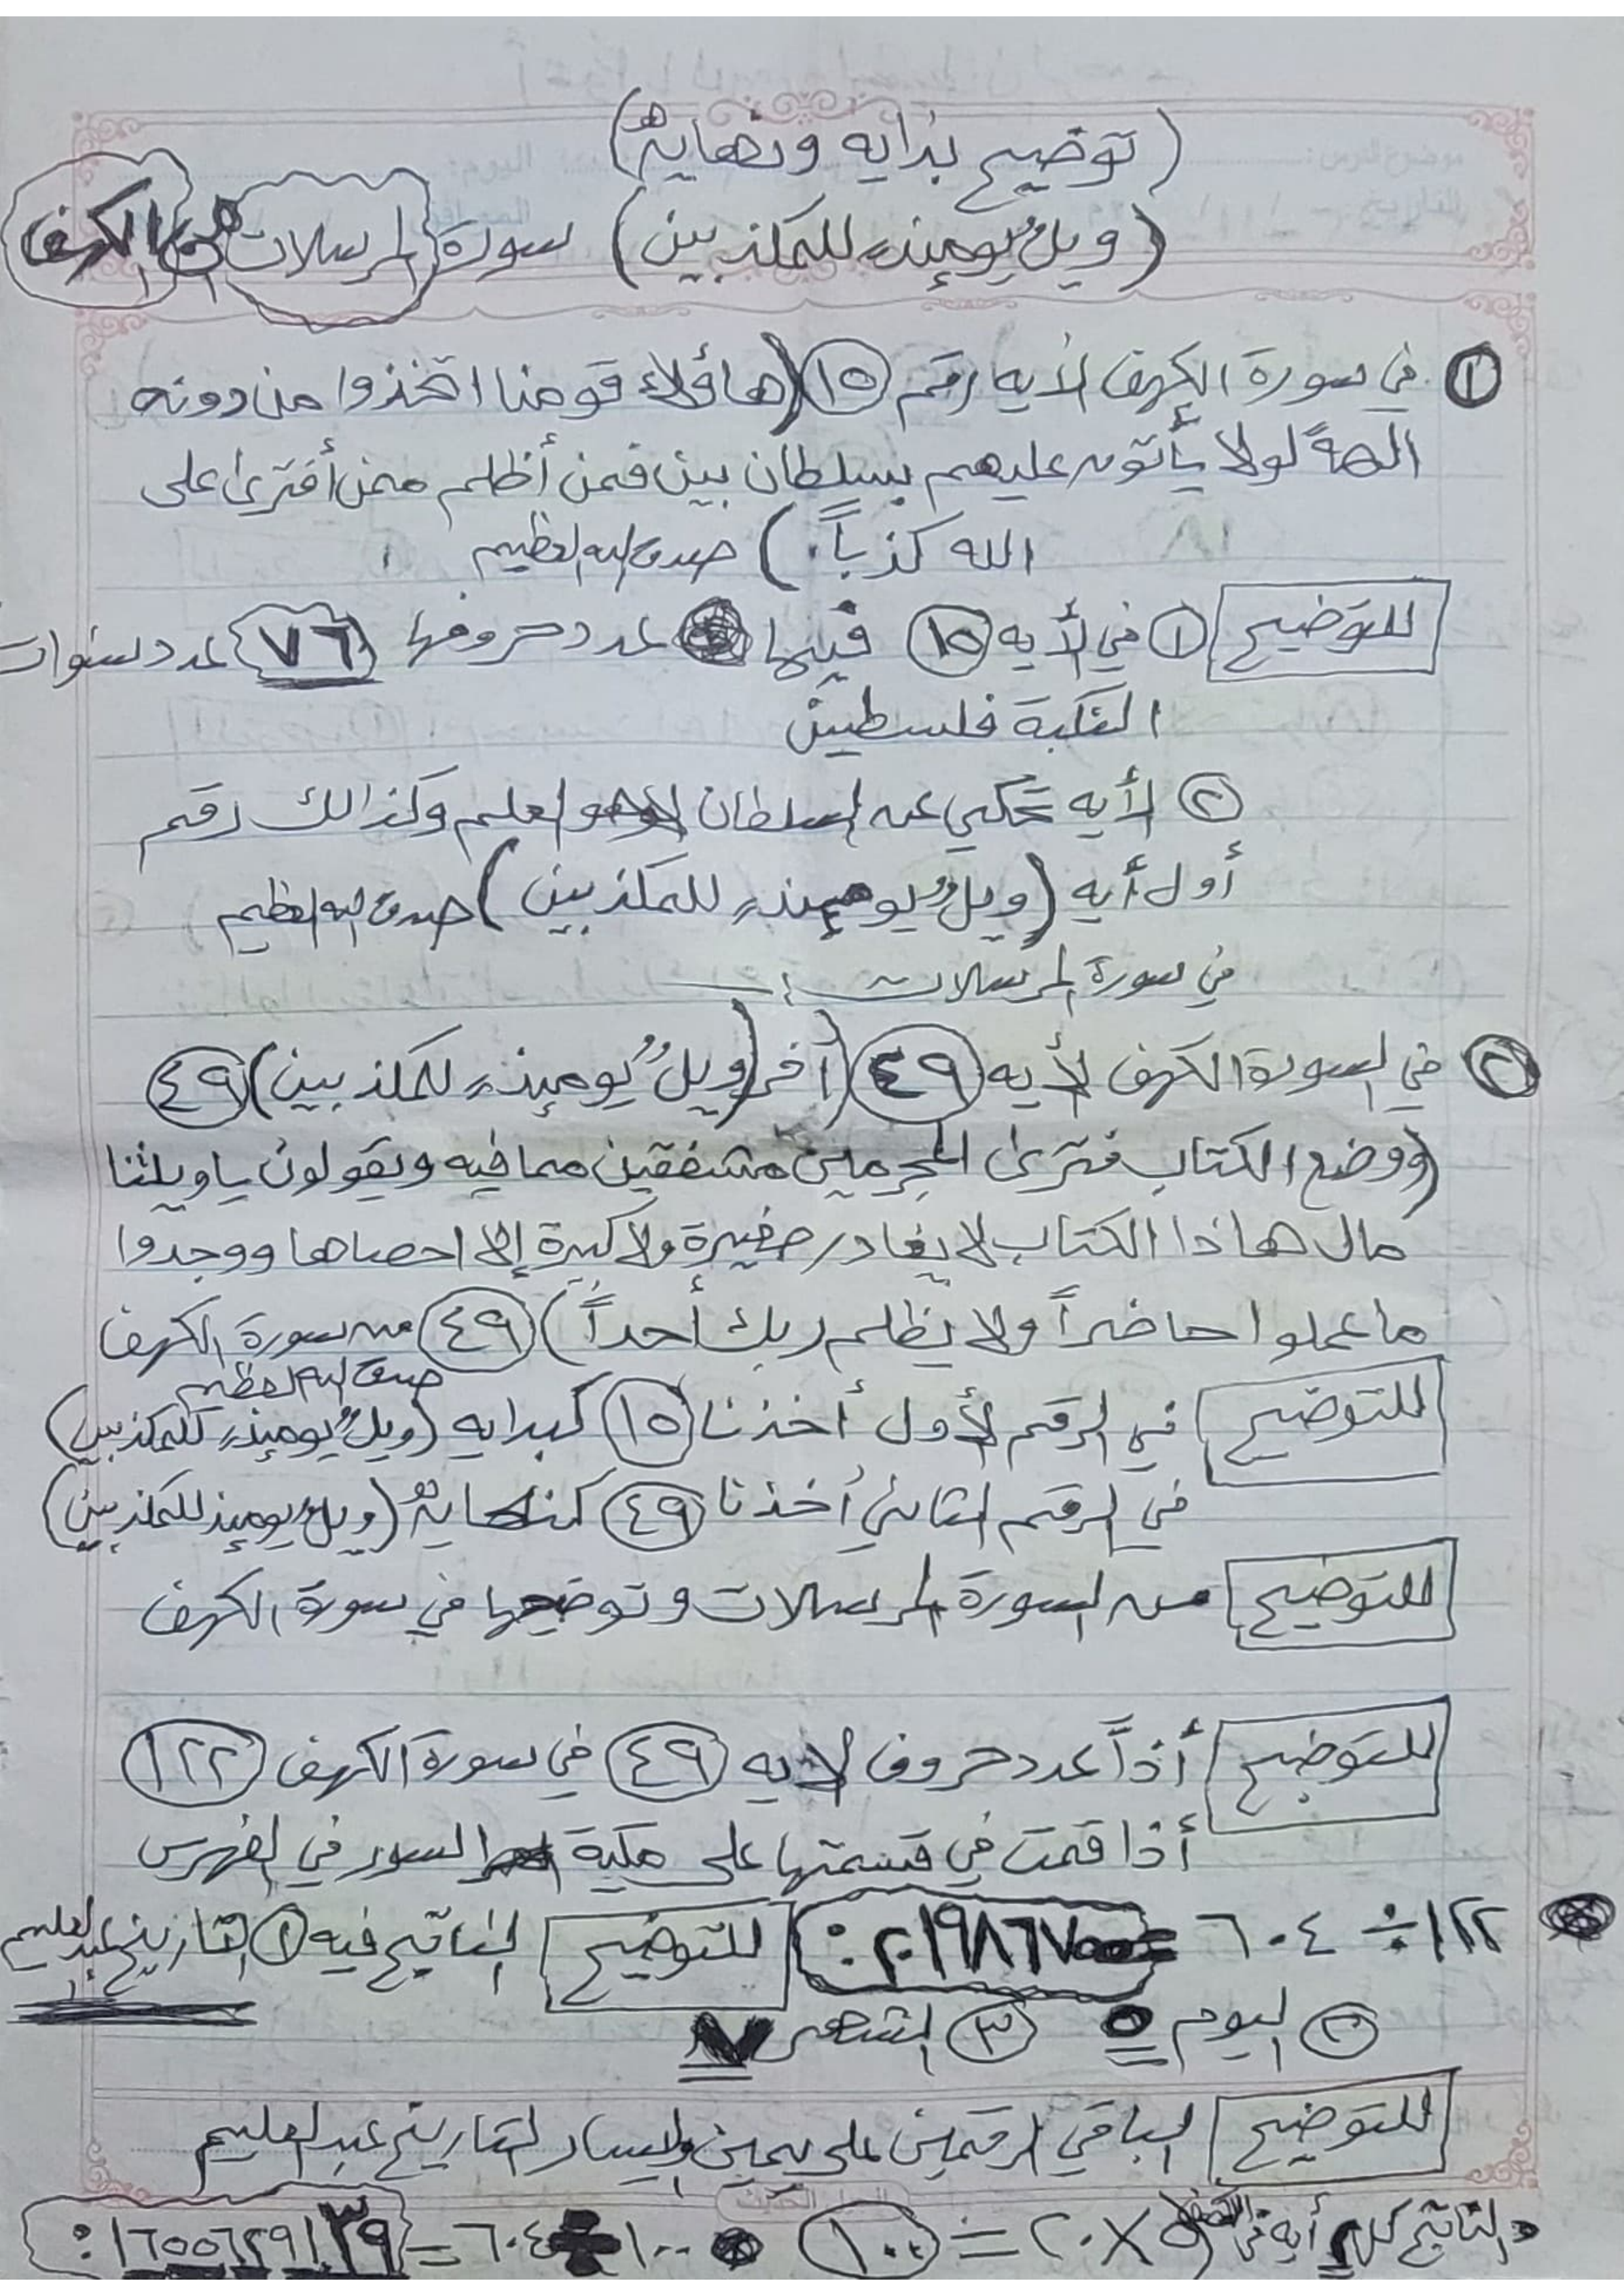 (توضيح بدايه ونهايه)
(ويلٌ يومئِذٍ للمكذبين) سورة المرسلات الكهف
١ في سورة الكهف الأيه رقم ١٥ (هاؤلاء قومنا اتخذوا من دونه
الهةً لولا يأتون عليهم بسلطان بين فمن أظلم ممن أفترئ على
الله كذباً.) صدق الله العظيم
للتوضيح ١ في لأيه ١٥ فيها عدد حروفها ٧٦ عدد سنوات
النكبة فلسطين
٢ لأيه تحكي عن السلطان العلم وكذالك رقم
أول أيه (ويلٌ يومئِذٍ للمكذبين) صدق الله العظيم
في سورة المرسلات
٢ في السورة الكهف لأيه ٤٩ (أخر (ويلٌ يومئِذٍ للمكذبين) ٤٩
(ووضع الكتاب فترئ المجرمين مشفقين مما فيه ويقولون ياويلتنا
مال هاذا الكتاب لا يغادر صغيرة ولا كبيرة إلا احصاها ووجدوا
ما عملوا حاضراً ولا يظلم ربك أحداً) ٤٩ من سورة الكهف
صدق الله العظيم
للتوضيح في الرقم لأول أخذنا ١٥ كبدايه (ويلٌ يومئِذٍ للمكذبين)
في الرقم الثاني أخذنا ٤٩ كنهايه (ويلٌ يومئذٍ للمكذبين)
للتوضيح من السورة المرسلات وتوضيحها في سورة الكهف
للتوضيح أذاً عدد حروف لايه ٤٩ في سورة الكهف ١٢٢
أذا قمت في قسمتها على مكية السور في الفهرس
١٢٢ ÷ ٦٠٤ = ٢٠١٩٨٦٧٥: للتوضيح الناتج فيه ١ التاريخ عبدالعليم
٢ اليوم ٥ ٣ الشهر ٧
للتوضيح الباقي الرقمين على يمين وليسار التاريخ عبدالعليم
الناتج كل أيه في ٥ × ٢٠ = ١٠٠ ١٠٠ ÷ ٦٠٤ = ١٦٥٥٦٢٩١٣٩: